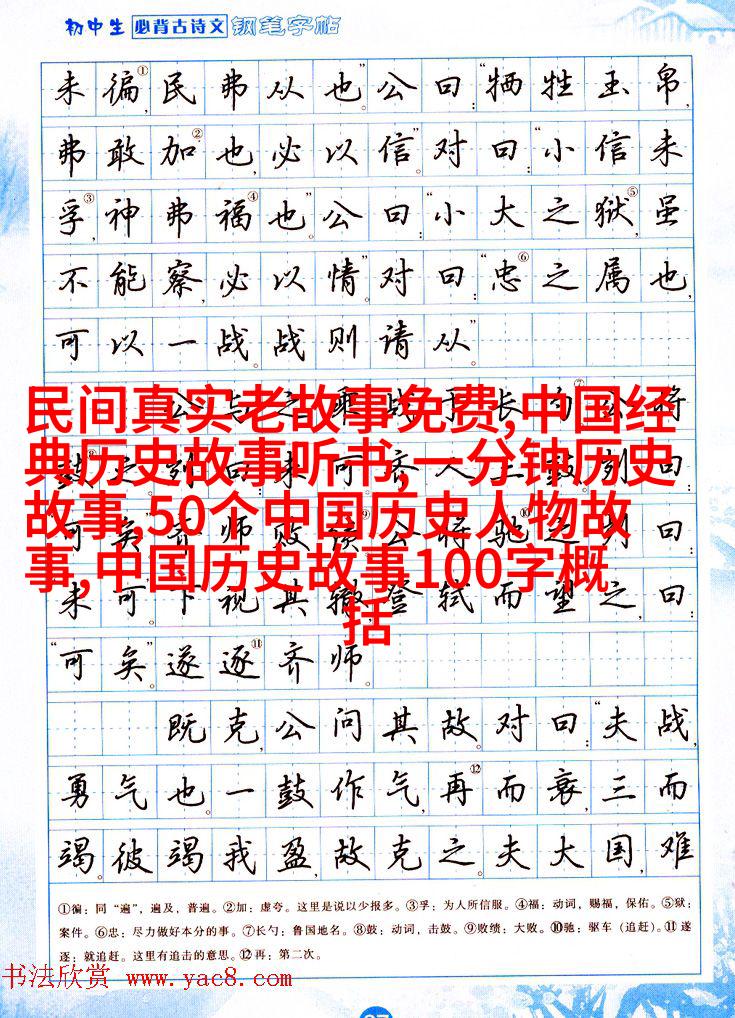 初中生 必背古诗文 钢笔字帖
未徧①,民弗从也。”公曰:“牺牲玉帛,
弗敢加②也,必以信。”对曰:“小信未
孚③,神弗福④也。”公曰:“小大之狱⑤,虽
不能察,必以情。”对曰:“忠⑥之属也,
可以一战。战则请从。”
公与之乘战于长勺⑦公将
民间真实老故事免费,中国经
典历史故事听书,一分钟历史
故事,50个中国历史人物故
事,中国历史故事100字概
括
未可。”下视其辙,登轼而望之,曰:
“可矣。”遂逐⑪齐师。
既克,公问其故。对曰:“夫战,
勇气也。一鼓作气,再⑫而衰,三而
竭。彼竭我盈,故克之。夫大国,难
①徧:同“遍”,遍及,普遍。②加:虚夸。这里是说以少报多。③孚:为人所信服。④福:动词,赐福,保佑。⑤狱:
案件。⑥忠:尽力做好本分的事。⑦长勺:鲁国地名。⑧鼓:动词,击鼓。⑨败绩:大败。⑩驰:驱车(追赶)。⑪遂
逐:就追赶。这里有追击的意思。⑫再:第二次。
书法欣赏 www.yac8.com